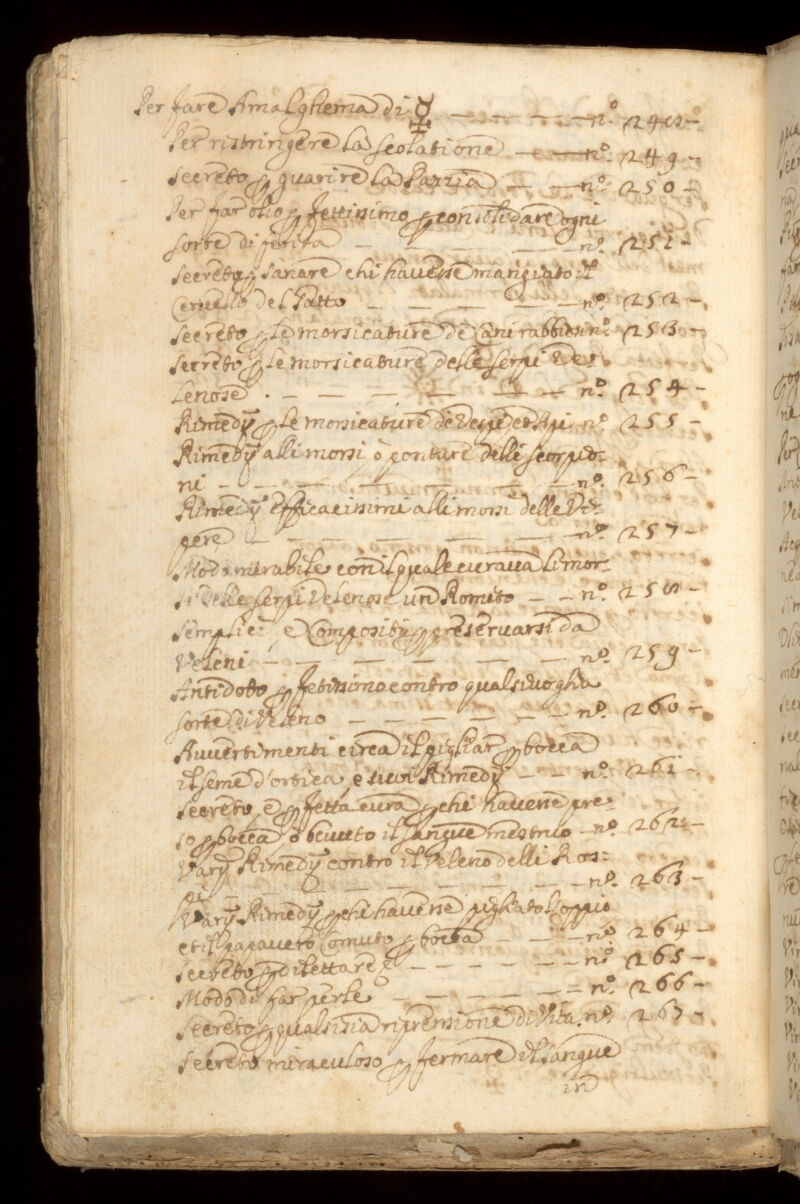 Per fare Amalghema di ☿ — — — — n.º 248 –
Per ristringere la scolatione — — — n.º 249 –
Secreto p guarire la Pazzia — — n.º 250 –
Per far olio pfettissimo p consolidare ogni
sorte di ferita — — — — — n.º 251 –
Secreto p sanare chi havesse mangiato il
Cervello del Gatto — — — — — n.º 252 –
Secreto p le morsicature de Cani rabbiosi n.º 253 –
Secreto p le morsicature delle serpi Ve=
lenose . – — — — — — n.º 254 –
Rimedÿ p le morsicature de Vespe et Api n.º 255 –
Rimedÿ alli morsi ò ponture delli scorpio=
ni — — — — — — — n.º 256 –
Rimedÿ efficacissimi alli morsi delle Vi=
pere — — — — — — — n.º 257 –
Modo mirabile con il quale curava li mor=
si delle serpi Velenose un Romito — – n.º 258 –
Semplici, e Compositi p preservarsi da
Veleni — — — — — — — n.º 259 –
Antidoto pfetissimo contro qualsivoglia
sorte di Veleno — — — — — – n.º 260 –
Avvertimenti circa il pigliar p bocca
il seme d'ortica, e suoi Rimedÿ – – n.º 261 –
Secreto, e pfetta cura p chi havesse pre=
so p bocca ò bevuto il sangue mestruo – n.º 262 –
Varÿ Rimedÿ contro il Veleno delli Ros=
pi — — — — — — — — n.º 263 –
Varÿ Rimedÿ p chi havesse pigliato l'oppio
et il papavero Cornuto p bocca – — – n.º 264 –
Secreto p dilettare — — — — — – n.º 265 –
Modo di far perle — — — — — – n.º 266 –
Secreto p qualsisia riprensione di Vita. n.º 267 –
Secreto miraculoso p fermare il sangue
in